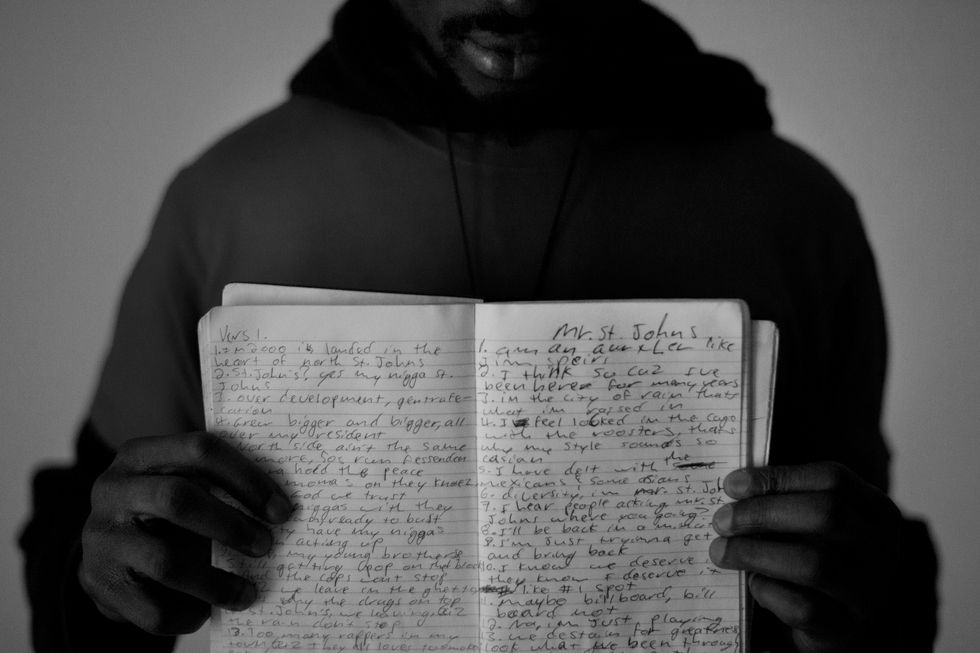 Vers 1.
1. In 2000 is landed in the
heart of north St. Johns
2. St. John's, yes my nigga St.
Johns
3. over development, gentrafe-
cation
4. Grew bigger and bigger, all
over my resident
North side ain't the same
more, Sos run Fessenden
hold the peace
moma's on they knees
God we trust
niggas with they
already to bust
have my nigga's
acting up
my young brothers
still get tiny pop on that block
the cops wont stop
we leave in the ghetto
the drugs on top
St. John's, we leaving cuz
the rain don't stop
13. Too many rappers in my
town, cuz they all loves to
Mr. St. Johns
1. am an like
im speir
2. I think so cuz I've
been here for many years
3. in the city of rain thats
what im rassed in
4. I feel looked in the cage
with the roosters, thats
why my style sounds so
casian
5. I have delt with the
mexicans & some asians
6. diversity, im mr. St. Joh
7. I hear people acting mr. St
Johns where you going?
8. I'll be back in a minute
9. I'm Just tryinna get
and bring back
10. I know we deserve i
they know I deserve it
like #1 spot
11. maybe bill board, bill
beard not
12. No, im Just playing
13. we destains for greatones
look what we been through